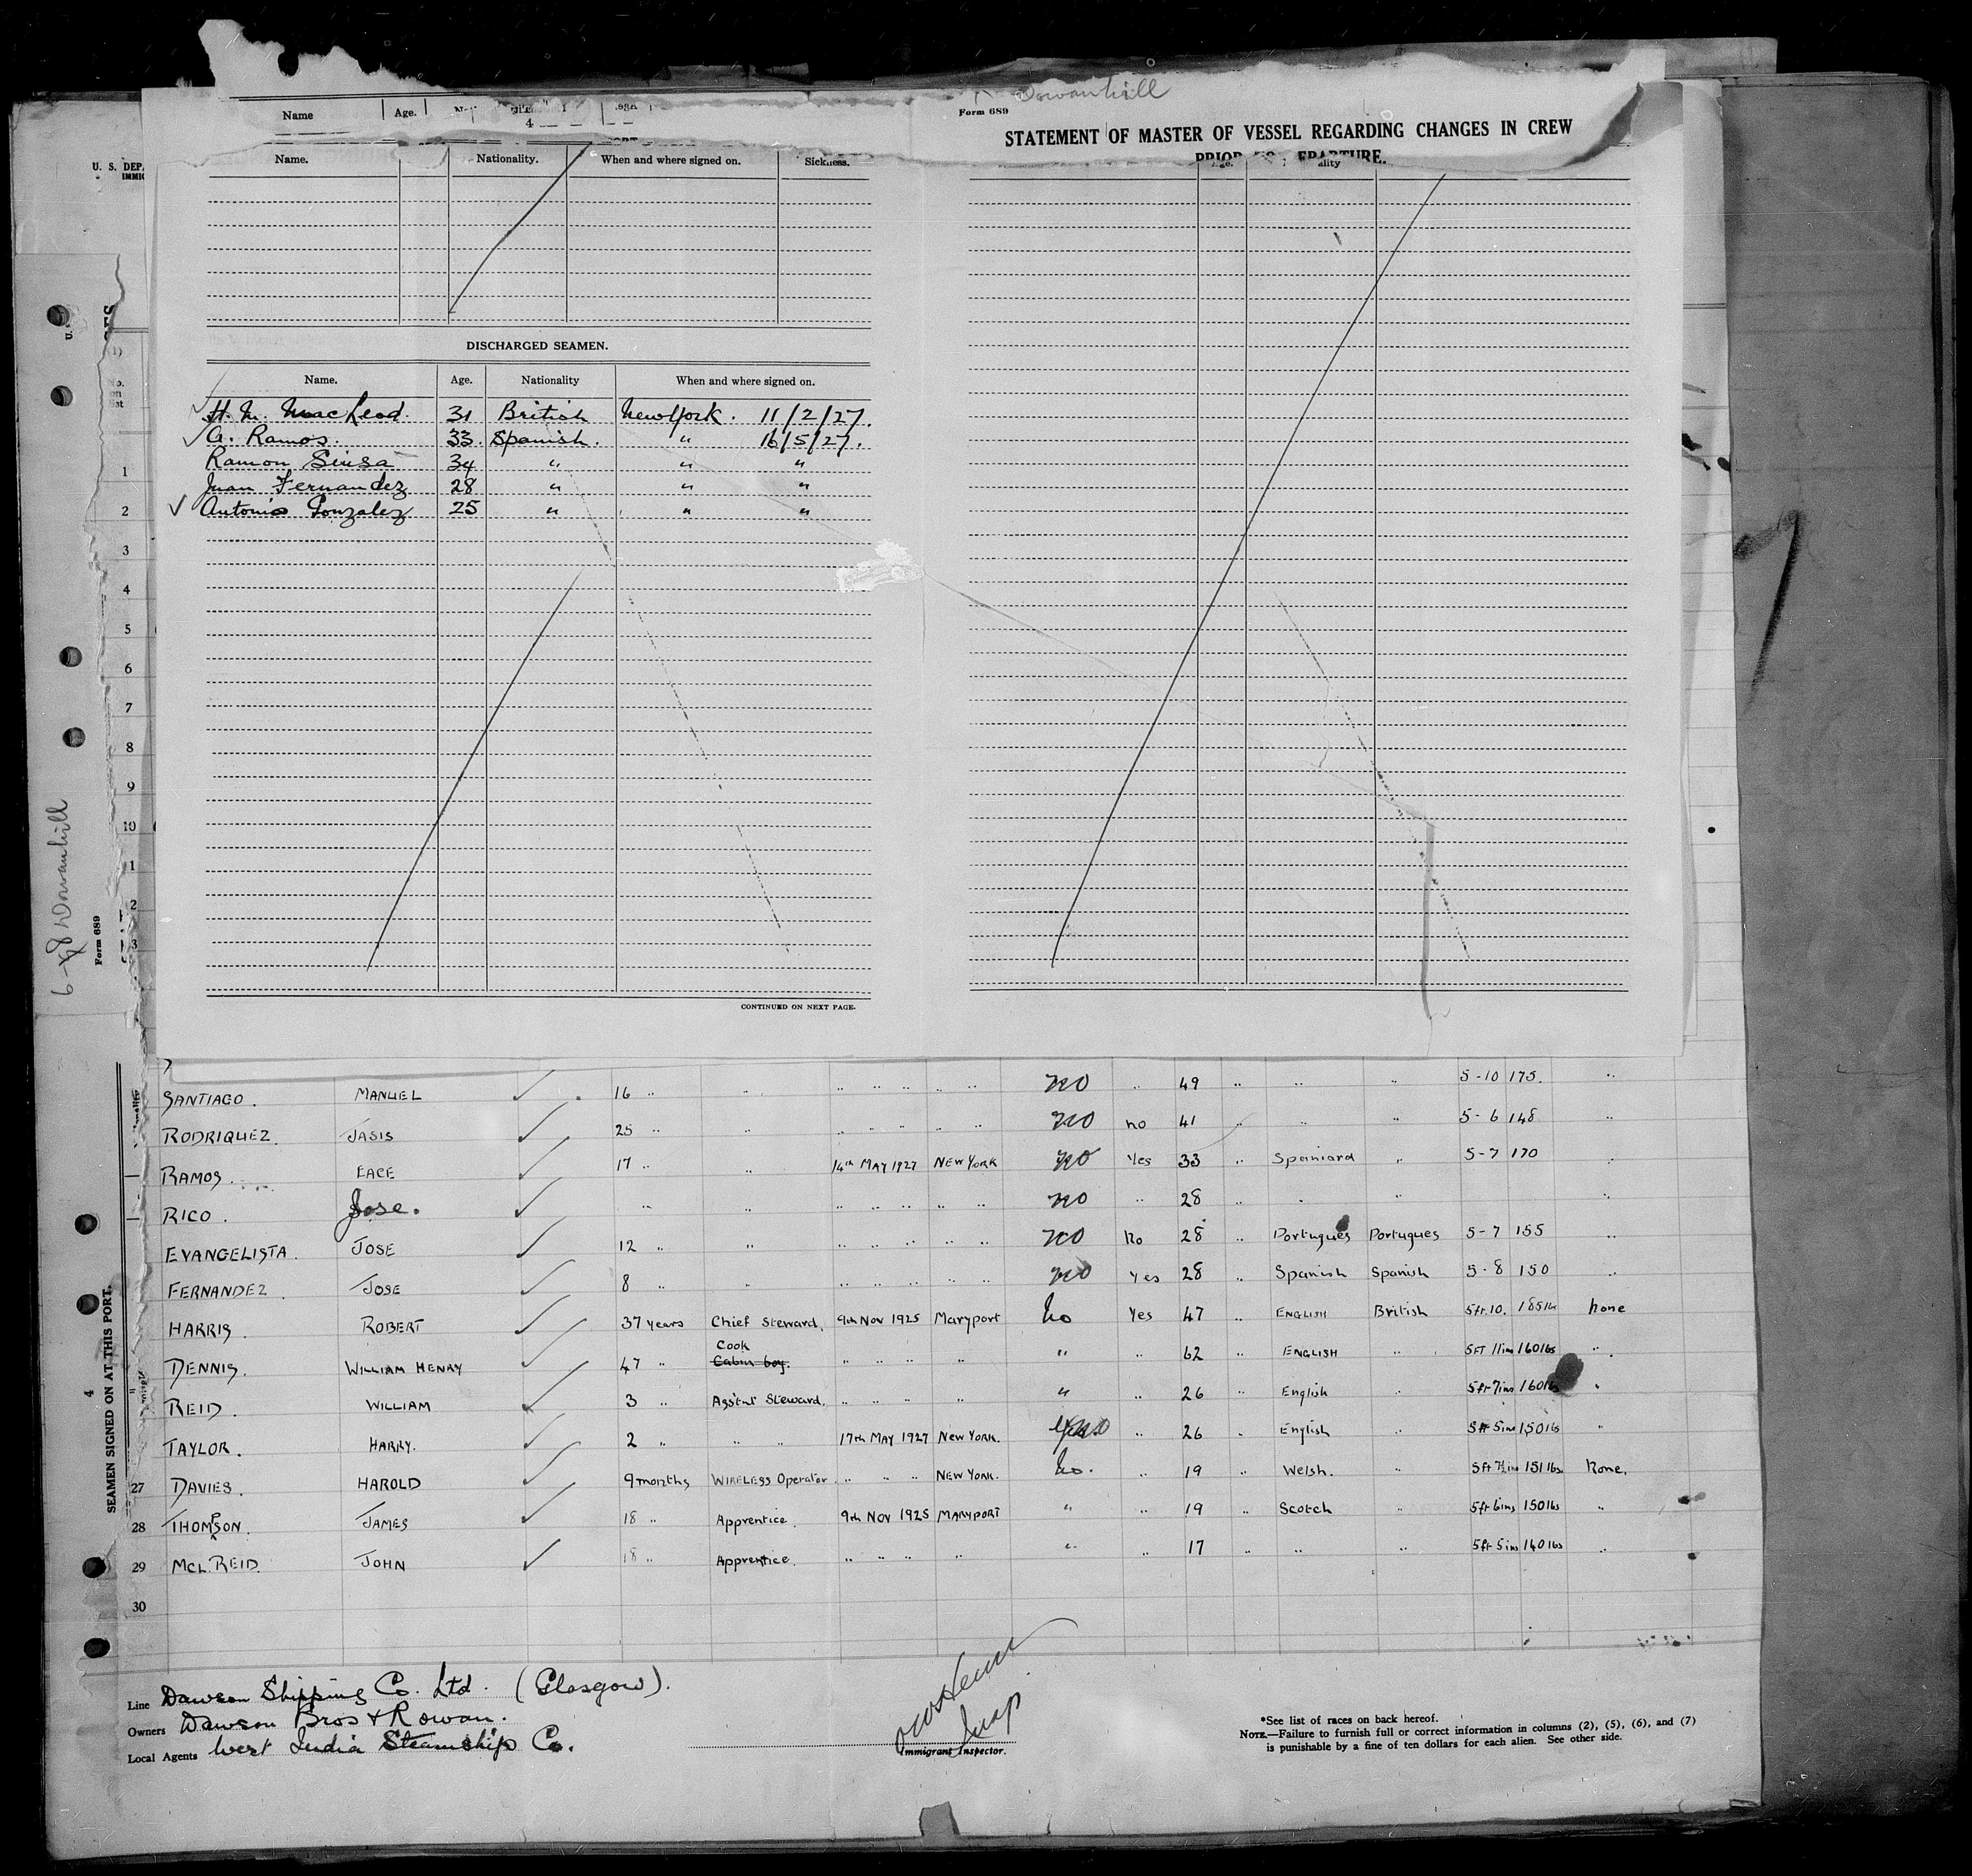 Dowanhill
Form 689
STATEMENT OF MASTER OF VESSEL REGARDING CHANGES IN CREW
PRIOR
Name Age.
4
Name. Nationality. When and where signed on. Sickness.
U. S. DEP.
IMMIG
DISCHARGED SEAMEN.
Name. Age. Nationality When and where signed on.
H. M. MacLeod. 31 British New York. 11/2/27.
A. Ramos. 33. Spanish. " 16/5/27.
Ramon Sinsa 34 " " "
Juan Fernandez 28 " " "
Antonio Gonzalez 25 " " "
1
2
3
4
5
6
7
8
9
10
1
2
3
CONTINUED ON NEXT PAGE.
Dowanhill
Form 689
4
SEAMEN SIGNED ON AT THIS PORT.
SANTIAGO. MANUEL 16 " " " " " " " no " 49 " " " 5-10 175. "
RODRIQUEZ. JASIS 25 " " " " " " " no no 41 " " " 5-6 148 "
RAMOS. EACE 17 " " 14th MAY 1927 NEW YORK no Yes 33 " Spaniard " 5-7 170 "
RICO. Jose. " " " " " " " no " 28 " " " "
EVANGELISTA. JOSE 12 " " " " " " " no No 28 " Portugues Portugues 5-7 155 "
FERNANDEZ. JOSE 8 " " " " " " " no Yes 28 " Spanish Spanish 5-8 150 "
HARRIS. ROBERT 37 years Chief Steward. 9th Nov 1925 Maryport No Yes 47 " ENGLISH British 5ft.10. 185lb None
Cook
DENNIS. WILLIAM HENRY 47 " Cabin boy. " " " " " " 62 " ENGLISH " 5FT 11ins 160lbs "
REID. WILLIAM 3 " Assist Steward. " " " " " " 26 " English " 5ft 7ins 160lbs "
TAYLOR. HARRY. 2 " " " 17th MAY 1927 New York. " 26 " English " 5ft 5ins 150lbs "
27 DAVIES. HAROLD 9 months WIRELESS Operator. " " " NEW YORK. No. " 19 " Welsh. " 5ft 7½ins 151lbs. None.
28 THOMPSON. JAMES 18 " Apprentice. 9th NOV 1925 MARYPORT " " 19 " Scotch " 5ft 6ins 150lbs "
29 MCL. REID. JOHN 18 " Apprentice. " " " " " " 17 " " " 5ft 5ins 140lbs "
30
Line Dawson Shipping Co. Ltd. (Glasgow).
Owners Dawson Bros & Rowan.
Local Agents West India Steamship Co.
Immigrant Inspector.
*See list of races on back hereof.
NOTE.—Failure to furnish full or correct information in columns (2), (5), (6), and (7)
is punishable by a fine of ten dollars for each alien. See other side.